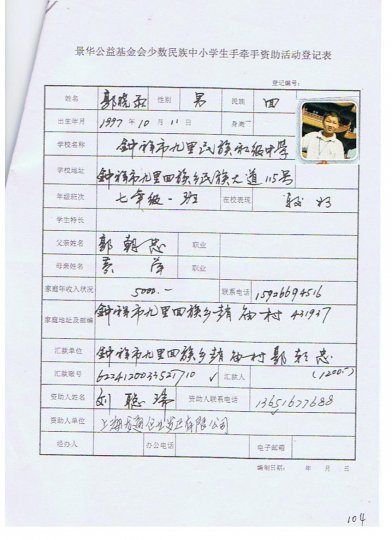 景华公益基金会少数民族中小学生手牵手资助活动登记表
登记编号：
姓名 郭晓 性别 男 民族 回
出生年月 1997年10月11日 身高
学校名称 钟祥市九里民族初级中学
学校地址 钟祥市九里回族乡民族大道115号
年级班次 七年级一班 在校表现 较好
学生特长
父亲姓名 郭朝 职业
母亲姓名 萍 职业
家庭年收入状况 5000.— 联系电话 15926694516
家庭地址及邮编 钟祥市九里回族乡庙村 431937
汇款单位 钟祥市九里回族乡庙村郭朝
汇款账号 6224120033521710 ✓ 汇款人 (1200.-)
资助人姓名 刘聪 资助人联系电话 13651677688
资助人单位 上海企业发展有限公司
经办人 办公电话 电子邮箱
编制日期： 年 月 日
104